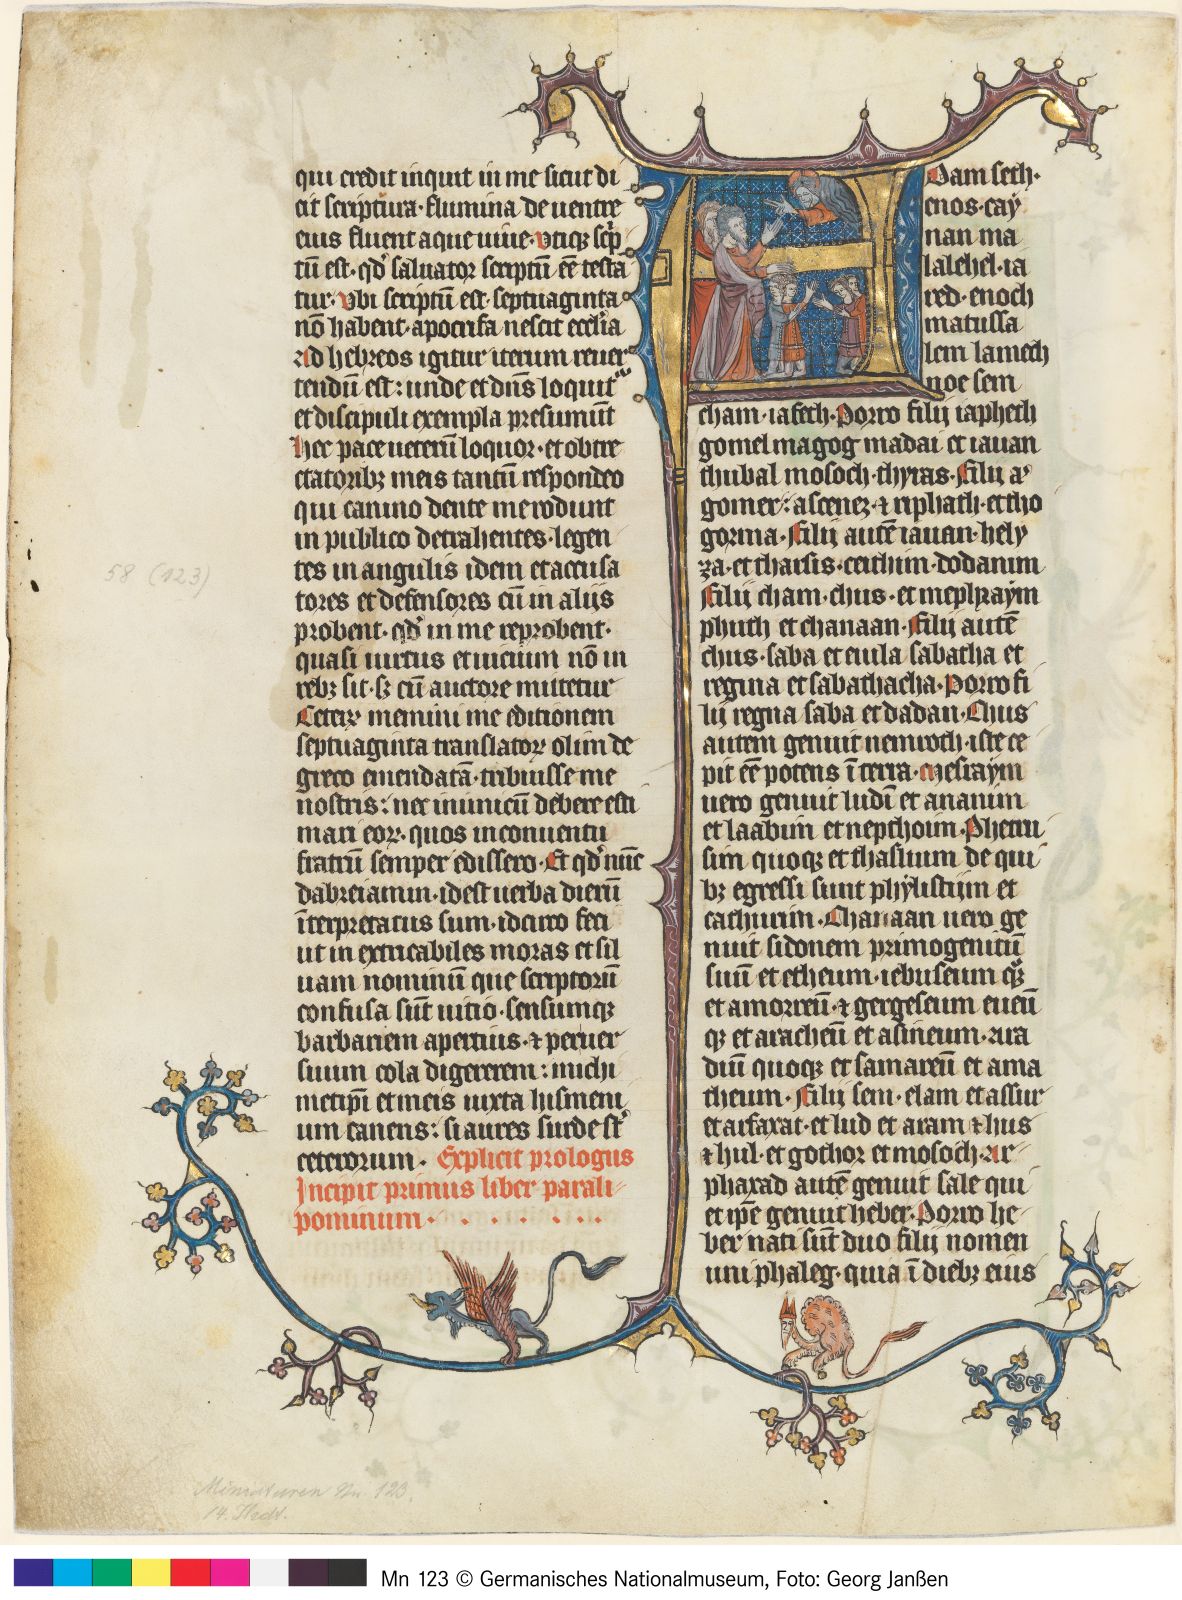 qui credit inquit in me sicut di
cit scriptura · flumina de uentre
eius fluent aque uiue · vtiqꝫ sc͛p
tū est · qd̕ saluator scriptū eē testa
tur · vbi scriptū est · septuaginta
nō habent · apocrifa nescit eccl̕ia
ad hebreos igitur iterum reuer
tendū est : unde et dn̄s loquit᷑
et discipuli exempla presumūt
hec pace ueterū loquor · et obtre
ctatoribꝫ meis tantū respondeo
qui canino dente me rodunt
in publico detrahentes · legen
tes in angulis idem et accusa
tores et defensores cū in alijs
probent · qd̕ in me reprobent ·
quasi uirtus et uicium nō in
rebꝫ sit · sꝫ cū auctore mutetur
Ceterꝝ memini me editionem
septuaginta translatorꝝ olim de
greco emendatā · tribuisse me
nostris : nec inimicū debere esti
mari eorꝝ · quos in conuentu
fratrū semper edissero · Et qd̕ nūc
dabreiamin · id est uerba dierū
īterpretatus sum · idcirco feci
ut in extricabiles moras et sil
uam nominū que scriptorū
confusa sūt uitio · sensumqꝫ
barbariem apertius · ⁊ peruer
suum cola digererem : michi
metip̄i et meis iuxta hismeni
um canens : si aures surde st̕
ceterorum · Explicit prologus
Incipit primus liber parali
pominum · · · · · ·
Adam seth ·
enos · cay
nan ma
lalehel · ia
red · enoch
matussa
lem lamech
noe sem
cham · iafeth · Porro filij iapheth
gomel magog madai et iauan
thubal mosoch · thyras · Filij a
gomer : ascenez · ⁊ riphath · et tho
gorma · Filij autē iauan · hely
za · et tharsis · cethim · dodanim
Filij cham · chus · et mephraym
phuth et chanaan · Filij autē
chus · saba et euila sabatha et
regma et sabathacha · Porro fi
lij regma saba et dadan · Chus
autem genuit nemroth · iste ce
pit eē potens ī terra · Mesraym
uero genuit ludī et ananim
et laabim et nepthoim · Phetru
sim quoqꝫ et thasluum de qui
bꝫ egressi sunt phylistijm et
cathurim · Chanaan uero ge
nuit sidonem primogenitū
suū et etheum · iebuseum qꝫ
et amorreū · ⁊ gergeseum eueū
qꝫ et aracheū et asineum · ara
diū quoqꝫ et samareū et ama
theum · Filij sem · elam et assur
et arfaxat · et lud et aram ⁊ hus
⁊ hul · et gothor et mosoch · ar
phaxad autē genuit sale qui
et ip̄e genuit heber · Porro he
ber nati sūt duo filij nomen
uni phaleg · quia ī diebꝫ eius
58 (123)
Miniaturen Nr. 123.
14. Jhdt.
Mn 123 © Germanisches Nationalmuseum, Foto: Georg Janßen